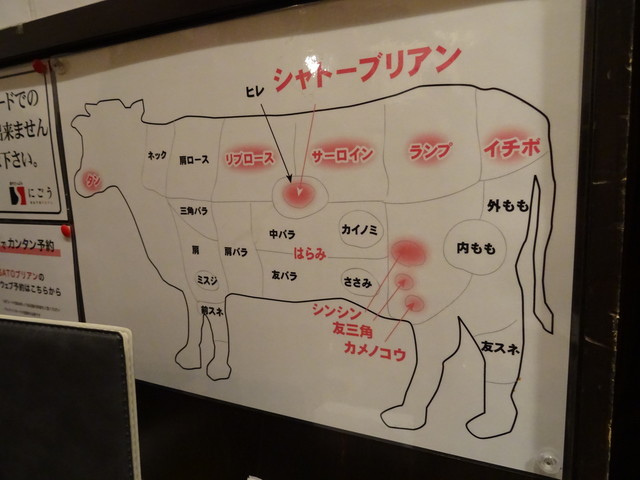 ードでの
出来ません
下さい。
にごう
でカンタン予約
SATOブリアンの
ウェブ予約はこちらから
ヒレ
シャトーブリアン
タン
ネック
肩ロース
リブロース
サーロイン
ランプ
イチボ
三角バラ
肩
肩バラ
中バラ
カイノミ
外もも
内もも
はらみ
友バラ
ささみ
ミスジ
前スネ
シンシン
友三角
カメノコウ
友スネ